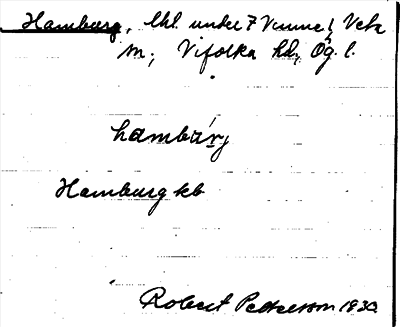 Hamburg, lhl. under 7 Vinne, Veta
sn, Vifolka hd, Ög. l.
hambúrj
Hamburg kb
Robert Pettersson 1930